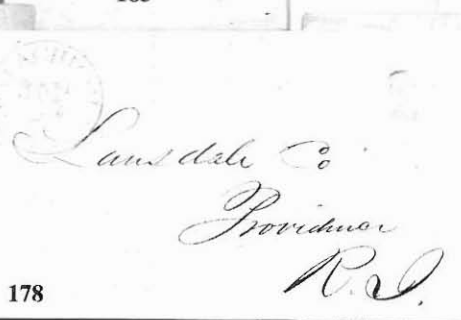 Lansdale Co
Providence
R. I.
178